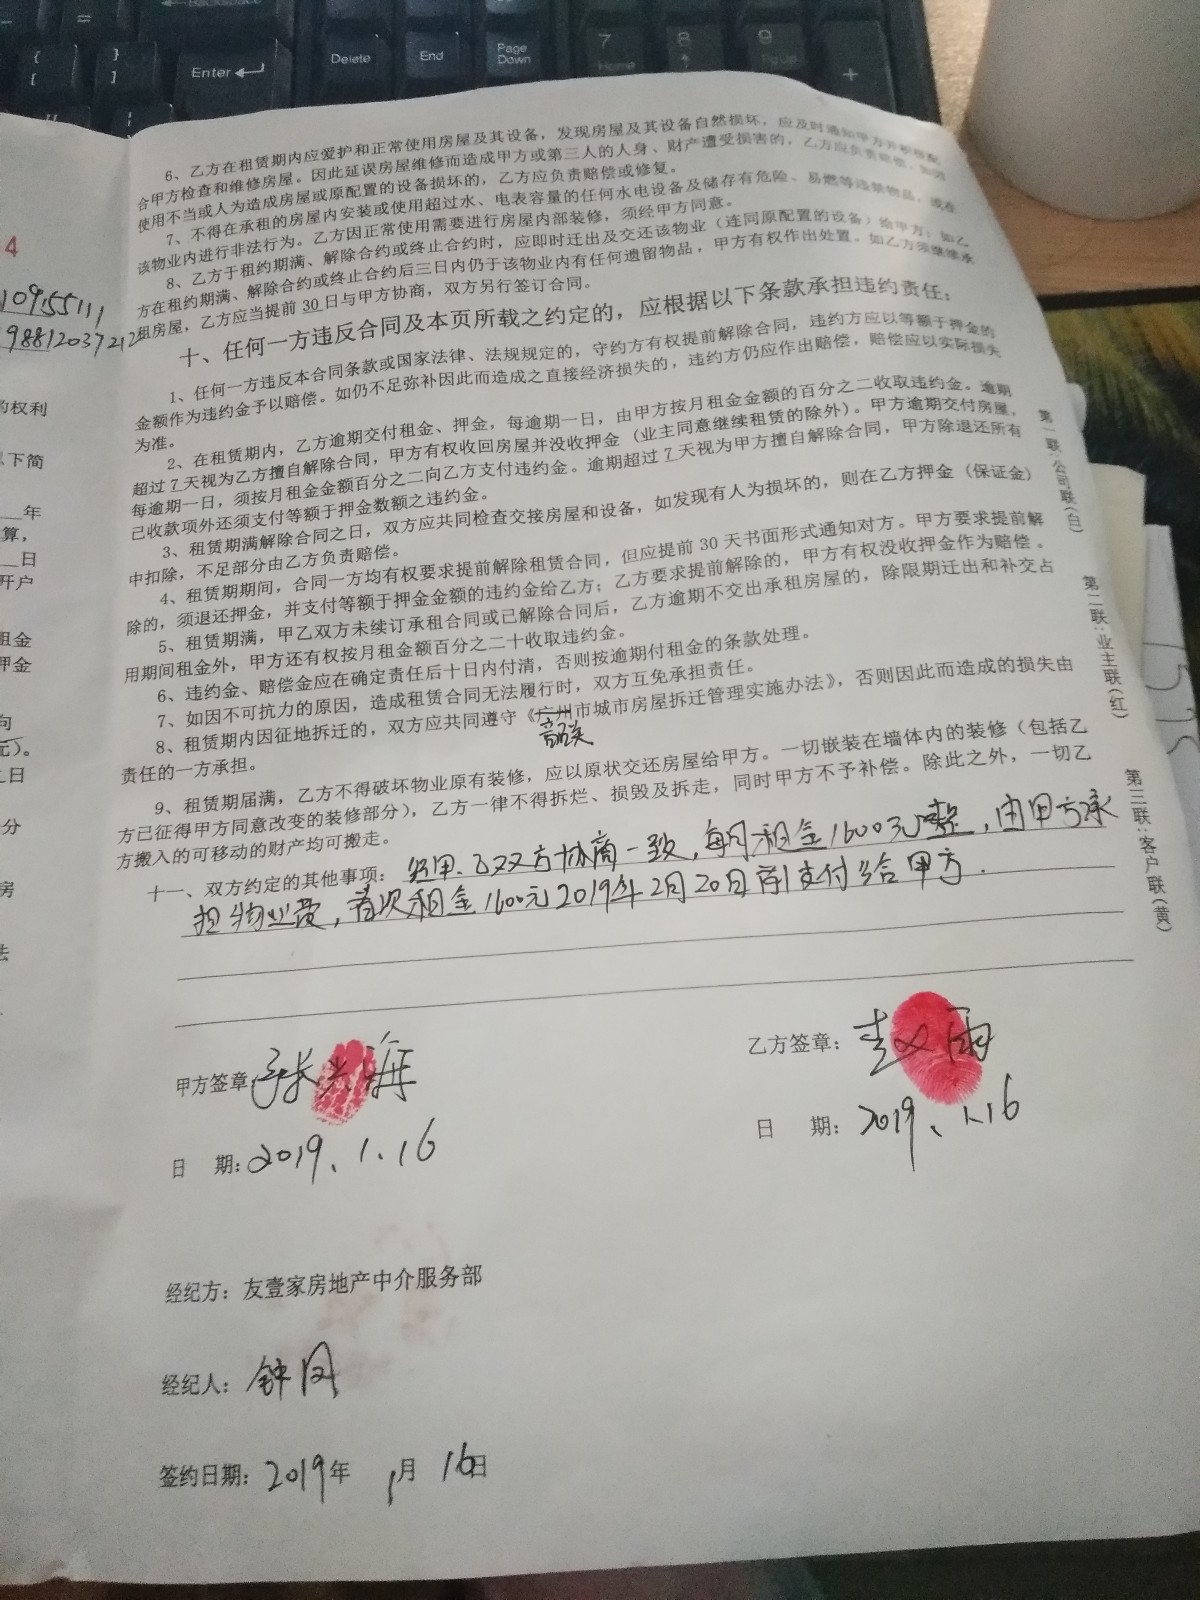 Backspace
Enter
Delete
End
Page Down
7
Home
8
9
PgUp
+
4
109155111
198812037212
的权利
以下简
年
算，
日
开户
租金
押金
向
元）。
日
分
房
法
6、乙方在租赁期内应爱护和正常使用房屋及其设备，发现房屋及其设备自然损坏，应及时通知甲方并积极配
合甲方检查和维修房屋。因此延误房屋维修而造成甲方或第三人的人身、财产遭受损害的，乙方应负责赔偿。如因
使用不当或人为造成房屋或原配置的设备损坏的，乙方应负责赔偿或修复。
7、不得在承租的房屋内安装或使用超过水、电表容量的任何水电设备及储存有危险、易燃等违禁物品，或在
该物业内进行非法行为。乙方因正常使用需要进行房屋内部装修，须经甲方同意。
8、乙方于租约期满、解除合约或终止合约时，应即时迁出及交还该物业（连同原配置的设备）给甲方；如乙
方在租约期满、解除合约或终止合约后三日内仍于该物业内有任何遗留物品，甲方有权作出处置。如乙方须继续承
租房屋，乙方应当提前30日与甲方协商，双方另行签订合同。
十、任何一方违反合同及本页所载之约定的，应根据以下条款承担违约责任：
1、任何一方违反本合同条款或国家法律、法规规定的，守约方有权提前解除合同，违约方应以等额于押金的
金额作为违约金予以赔偿。如仍不足弥补因此而造成之直接经济损失的，违约方仍应作出赔偿，赔偿应以实际损失
为准。
2、在租赁期内，乙方逾期交付租金、押金，每逾期一日，由甲方按月租金金额的百分之二收取违约金。逾期
超过7天视为乙方擅自解除合同，甲方有权收回房屋并没收押金（业主同意继续租赁的除外）。甲方逾期交付房屋，
每逾期一日，须按月租金金额百分之二向乙方支付违约金。逾期超过7天视为甲方擅自解除合同，甲方除退还所有
己收款项外还须支付等额于押金数额之违约金。
3、租赁期满解除合同之日，双方应共同检查交接房屋和设备，如发现有人为损坏的，则在乙方押金（保证金）
中扣除，不足部分由乙方负责赔偿。
4、租赁期期间，合同一方均有权要求提前解除租赁合同，但应提前30天书面形式通知对方。甲方要求提前解
除的，须退还押金，并支付等额于押金金额的违约金给乙方；乙方要求提前解除的，甲方有权没收押金作为赔偿。
5、租赁期满，甲乙双方未续订承租合同或已解除合同后，乙方逾期不交出承租房屋的，除限期迁出和补交占
用期间租金外，甲方还有权按月租金额百分之二十收取违约金。
6、违约金、赔偿金应在确定责任后十日内付清，否则按逾期付租金的条款处理。
7、如因不可抗力的原因，造成租赁合同无法履行时，双方互免承担责任。
8、租赁期内因征地拆迁的，双方应共同遵守《广州市城市房屋拆迁管理实施办法》，否则因此而造成的损失由
韶关
责任的一方承担。
9、租赁期届满，乙方不得破坏物业原有装修，应以原状交还房屋给甲方。一切嵌装在墙体内的装修（包括乙
方已征得甲方同意改变的装修部分），乙方一律不得拆烂、损毁及拆走，同时甲方不予补偿。除此之外，一切乙
方搬入的可移动的财产均可搬走。
十一、双方约定的其他事项：经甲、乙双方协商一致，每月租金1600元整，由甲方承
担物业费，首次租金1600元2019年2月20日前支付给甲方.
甲方签章：张兴海
日 期：2019、1、16
乙方签章：赵雨
日 期：2019、1.16
经纪方：友壹家房地产中介服务部
经纪人：钟凤
签约日期：2019年 1月 16日
第一联：公司联（白）
第二联：业主联（红）
第三联：客户联（黄）